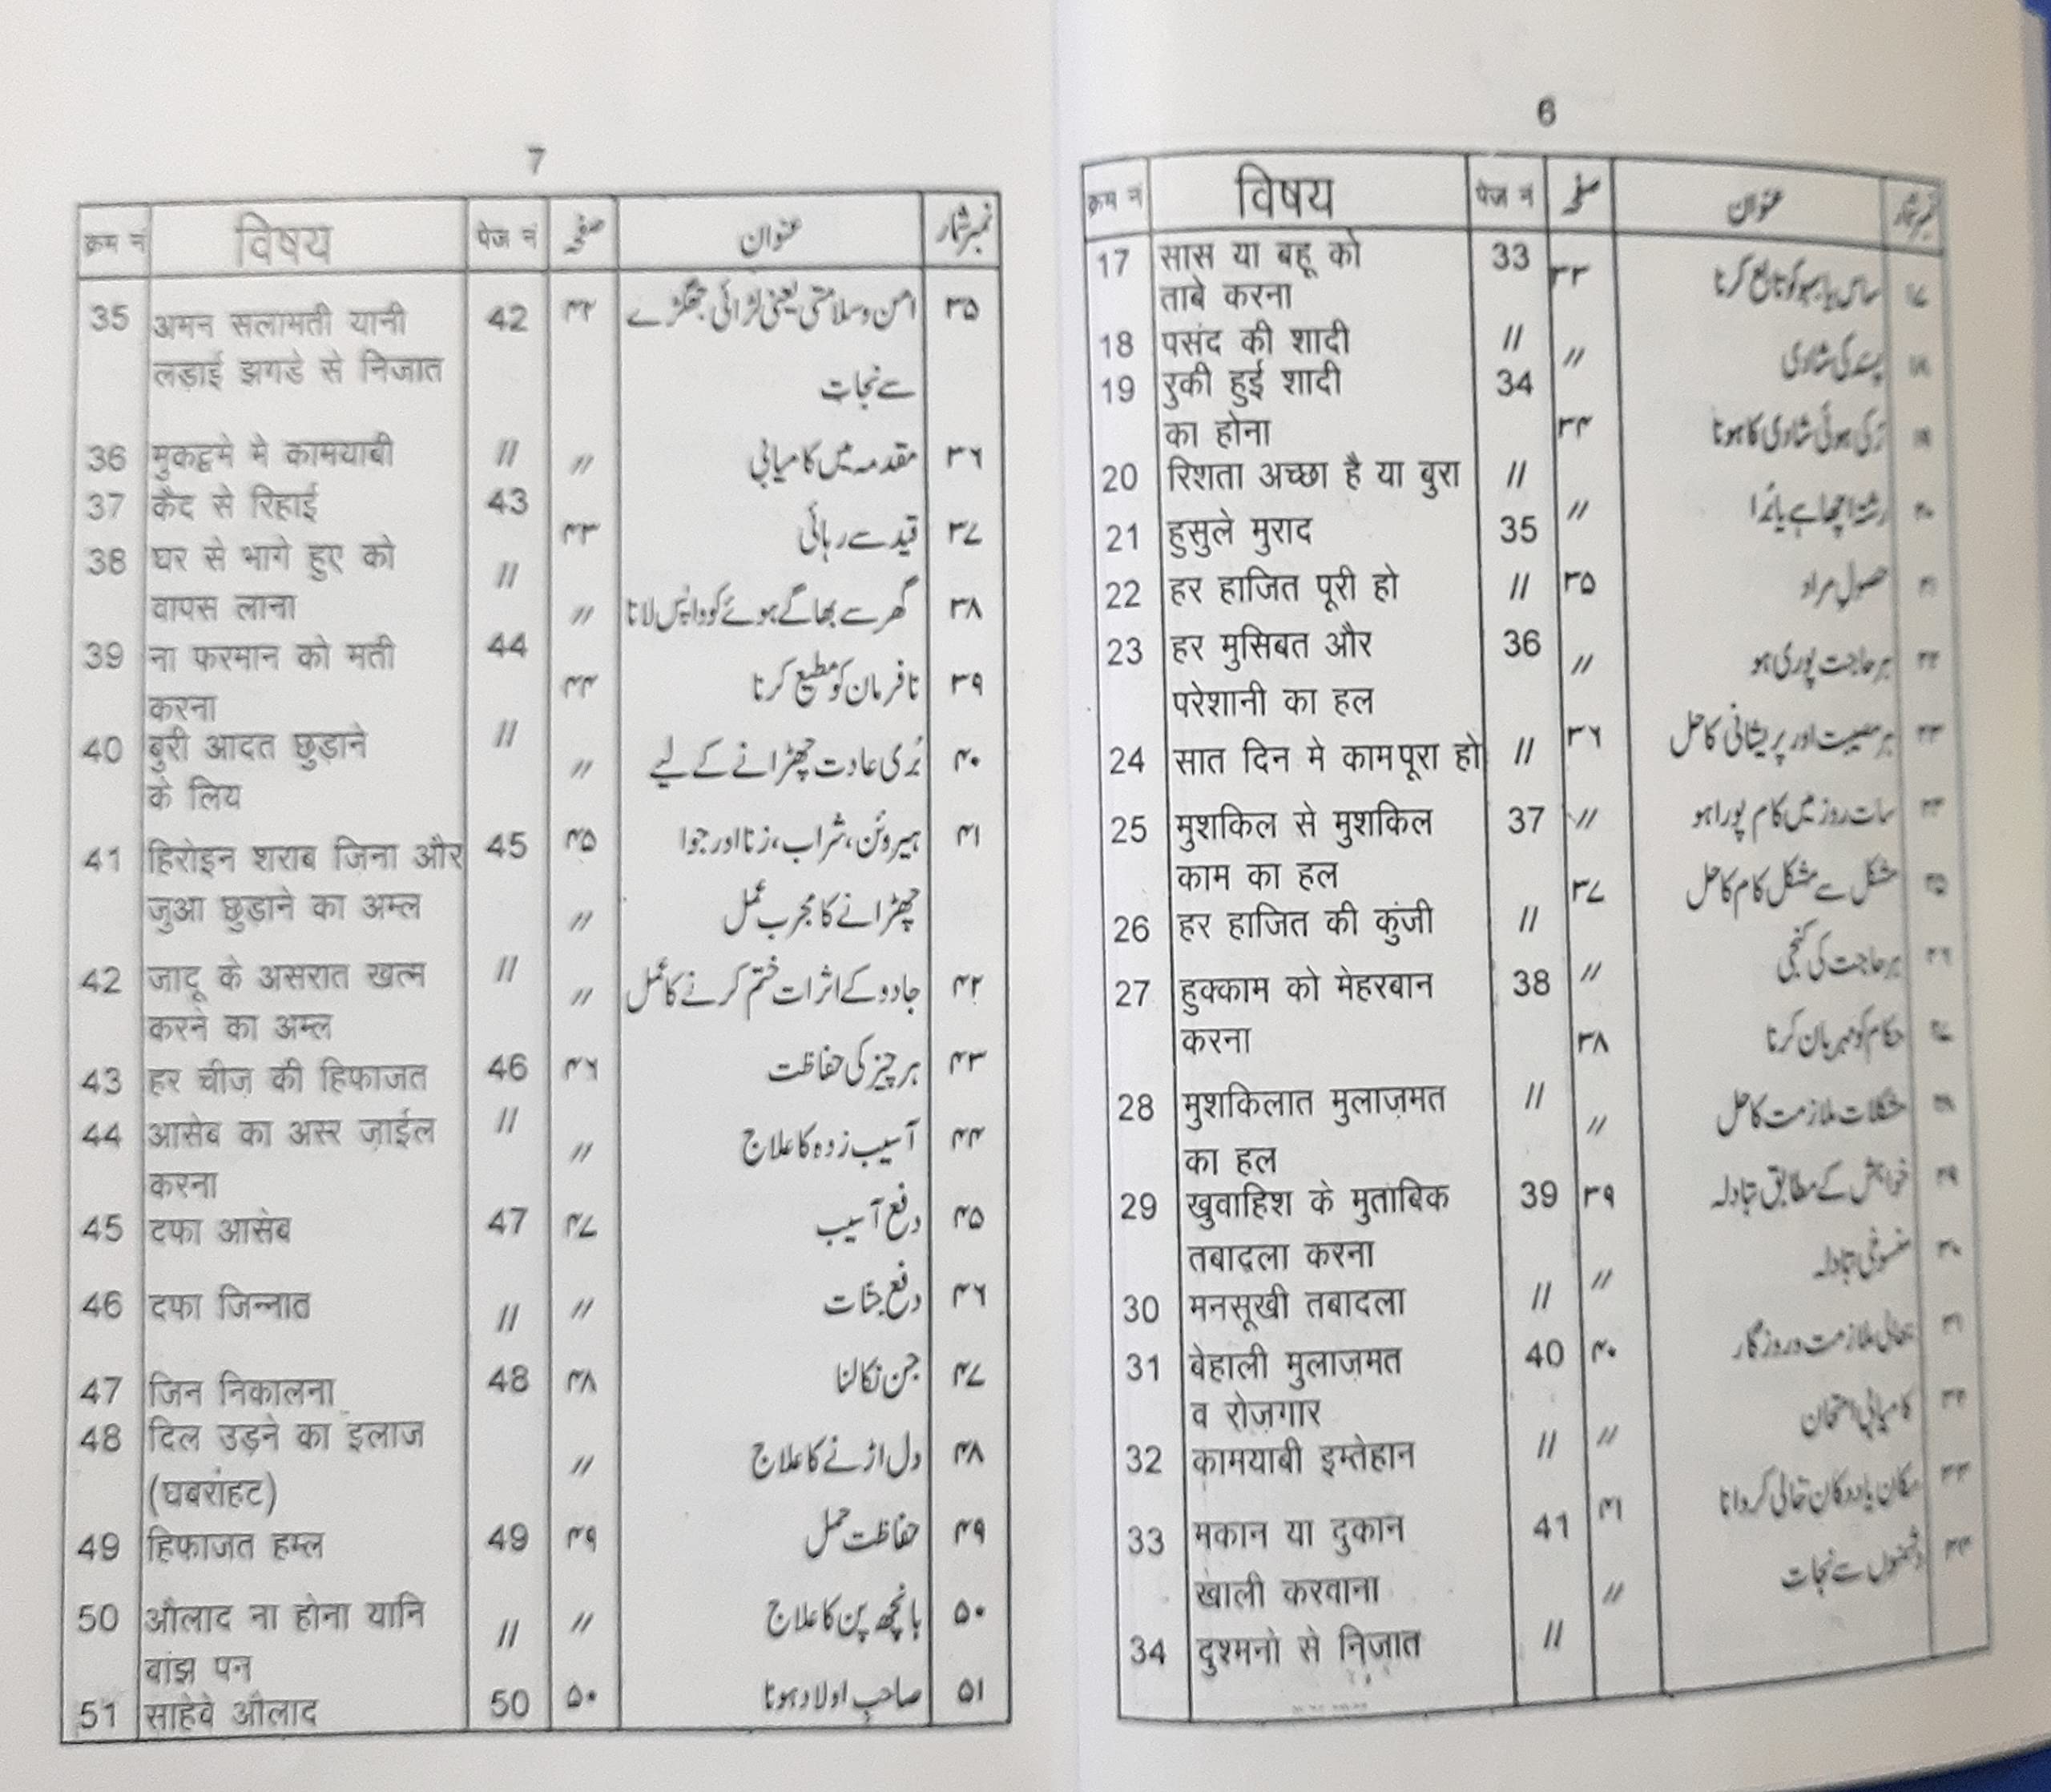 6
क्रम नं विषय पेज नं صفحہ عنوان نمبرشمار
17 सास या बहू को 33 ۳۳ ساس یا بہو کو تابع کرنا ۱۷
ताबे करना
18 पसंद की शादी // // پسند کی شادی ۱۸
19 रुकी हुई शादी 34 ۳۴ رُکی ہوئی شادی کا ہونا ۱۹
का होना
20 रिशता अच्छा है या बुरा // // رشتہ اچھا ہے یا بُرا ۲۰
21 हुसुले मुराद 35 ۳۵ حصولِ مراد ۲۱
22 हर हाजित पूरी हो // // ہر حاجت پوری ہو ۲۲
23 हर मुसिबत और 36 ۳۶ ہر مصیبت اور پریشانی کا حل ۲۳
परेशानी का हल
24 सात दिन मे काम पूरा हो // // سات روز میں کام پورا ہو ۲۴
25 मुशकिल से मुशकिल 37 ۳۷ مشکل سے مشکل کام کا حل ۲۵
काम का हल
26 हर हाजित की कुंजी // // ہر حاجت کی کنجی ۲۶
27 हुक्काम को मेहरबान 38 ۳۸ حکام کو مہربان کرنا ۲۷
करना
28 मुशकिलात मुलाज़मत // // مشکلات ملازمت کا حل ۲۸
का हल
29 खुवाहिश के मुताबिक 39 ۳۹ خواہش کے مطابق تبادلہ ۲۹
तबाद्ला करना
30 मनसूखी तबादला // // منسوخی تبادلہ ۳۰
31 बेहाली मुलाज़मत 40 ۴۰ بحالی ملازمت و روزگار ۳۱
व रोज़गार
32 कामयाबी इम्तेहान // // کامیابی امتحان ۳۲
33 मकान या दुकान 41 ۴۱ مکان یا دوکان خالی کروانا ۳۳
खाली करवाना
34 दुश्मनो से निजात // // دشمنوں سے نجات ۳۴
7
क्रम नं विषय पेज नं صفحہ عنوان نمبرشمار
35 अमन सलामती यानी 42 ۴۲ امن و سلامتی یعنی لڑائی جھگڑے ۳۵
लडाई झगडे से निजात سے نجات
36 मुकद्दमे मे कामयाबी // // مقدمہ میں کامیابی ۳۶
37 कैद से रिहाई 43 ۴۳ قید سے رہائی ۳۷
38 घर से भागे हुए को // // گھر سے بھاگے ہوئے کو واپس لانا ۳۸
वापस लाना
39 ना फरमान को मती 44 ۴۴ نافرمان کو مطیع کرنا ۳۹
करना
40 बुरी आदत छुड़ाने // // بُری عادت چھڑانے کے لیے ۴۰
के लिय
41 हिरोइन शराब ज़िना और 45 ۴۵ ہیروئن، شراب، زنا اور جوا ۴۱
जुआ छुड़ाने का अम्ल // چھڑانے کا مجرب عمل
42 जादू के असरात खत्म // // جادو کے اثرات ختم کرنے کا عمل ۴۲
करने का अम्ल
43 हर चीज़ की हिफाजत 46 ۴۶ ہر چیز کی حفاظت ۴۳
44 आसेब का अस्र ज़ाईल // // آسیب زدہ کا علاج ۴۴
करना
45 दफा आसेब 47 ۴۷ دفع آسیب ۴۵
46 दफा जिन्नात // // دفع جنّات ۴۶
47 जिन निकालना 48 ۴۸ جن نکالنا ۴۷
48 दिल उड़ने का इलाज // دل اڑنے کا علاج ۴۸
(घबरांहट)
49 हिफाजत हम्ल 49 ۴۹ حفاظت حمل ۴۹
50 औलाद ना होना यानि // // بانجھ پن کا علاج ۵۰
बांझ पन
51 साहेबे औलाद 50 ۵۰ صاحبِ اولاد ہونا ۵۱